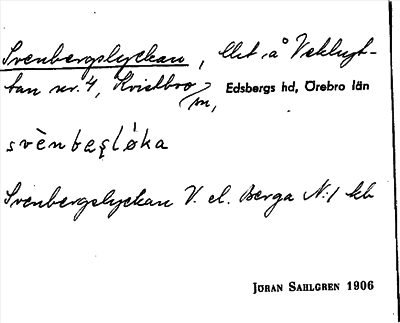 Svenbergslyckan, Llit å Veklugt-
tan nr. 4, Kvistbro sn, Edsbergs hd, Örebro län
svènbæșlo̍ka
Svenbergslyckan V. el. Berga N:1 kb
JÖRAN SAHLGREN 1906